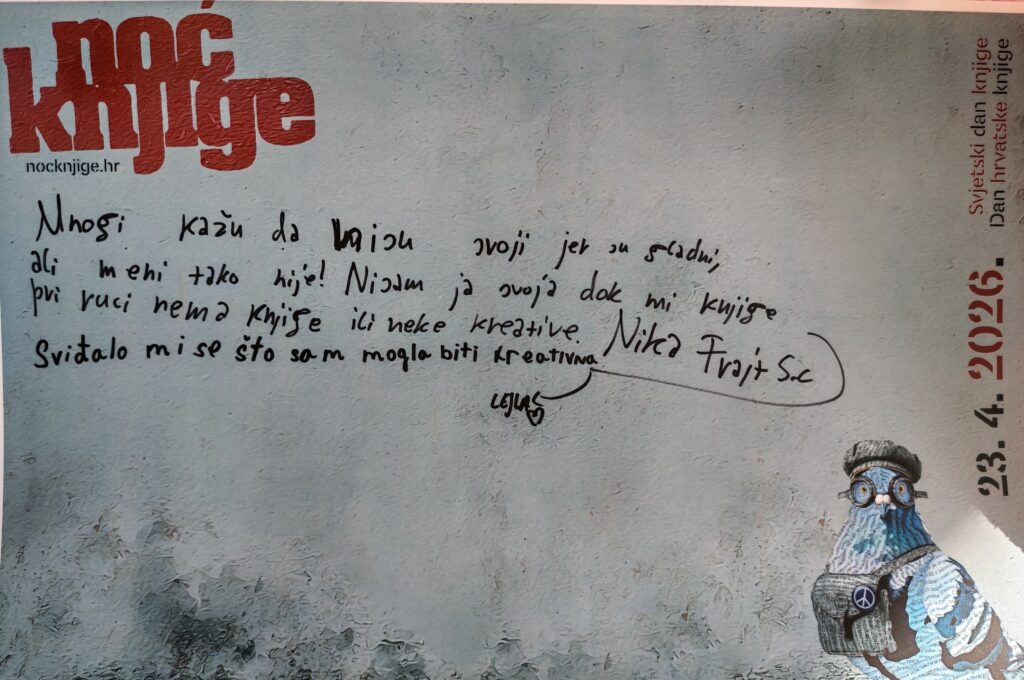 noć
knjige
nocknjige.hr
Svjetski dan knjige
Dan hrvatske knjige
23. 4. 2026.
Mnogi kažu da nisu svoji jer su gladni,
ali meni tako nije! Nisam ja svoja dok mi knjige
pri ruci nema knjige ili neke kreative. Nika Frajt 5.c
Sviđalo mi se što sam mogla biti kreativna.